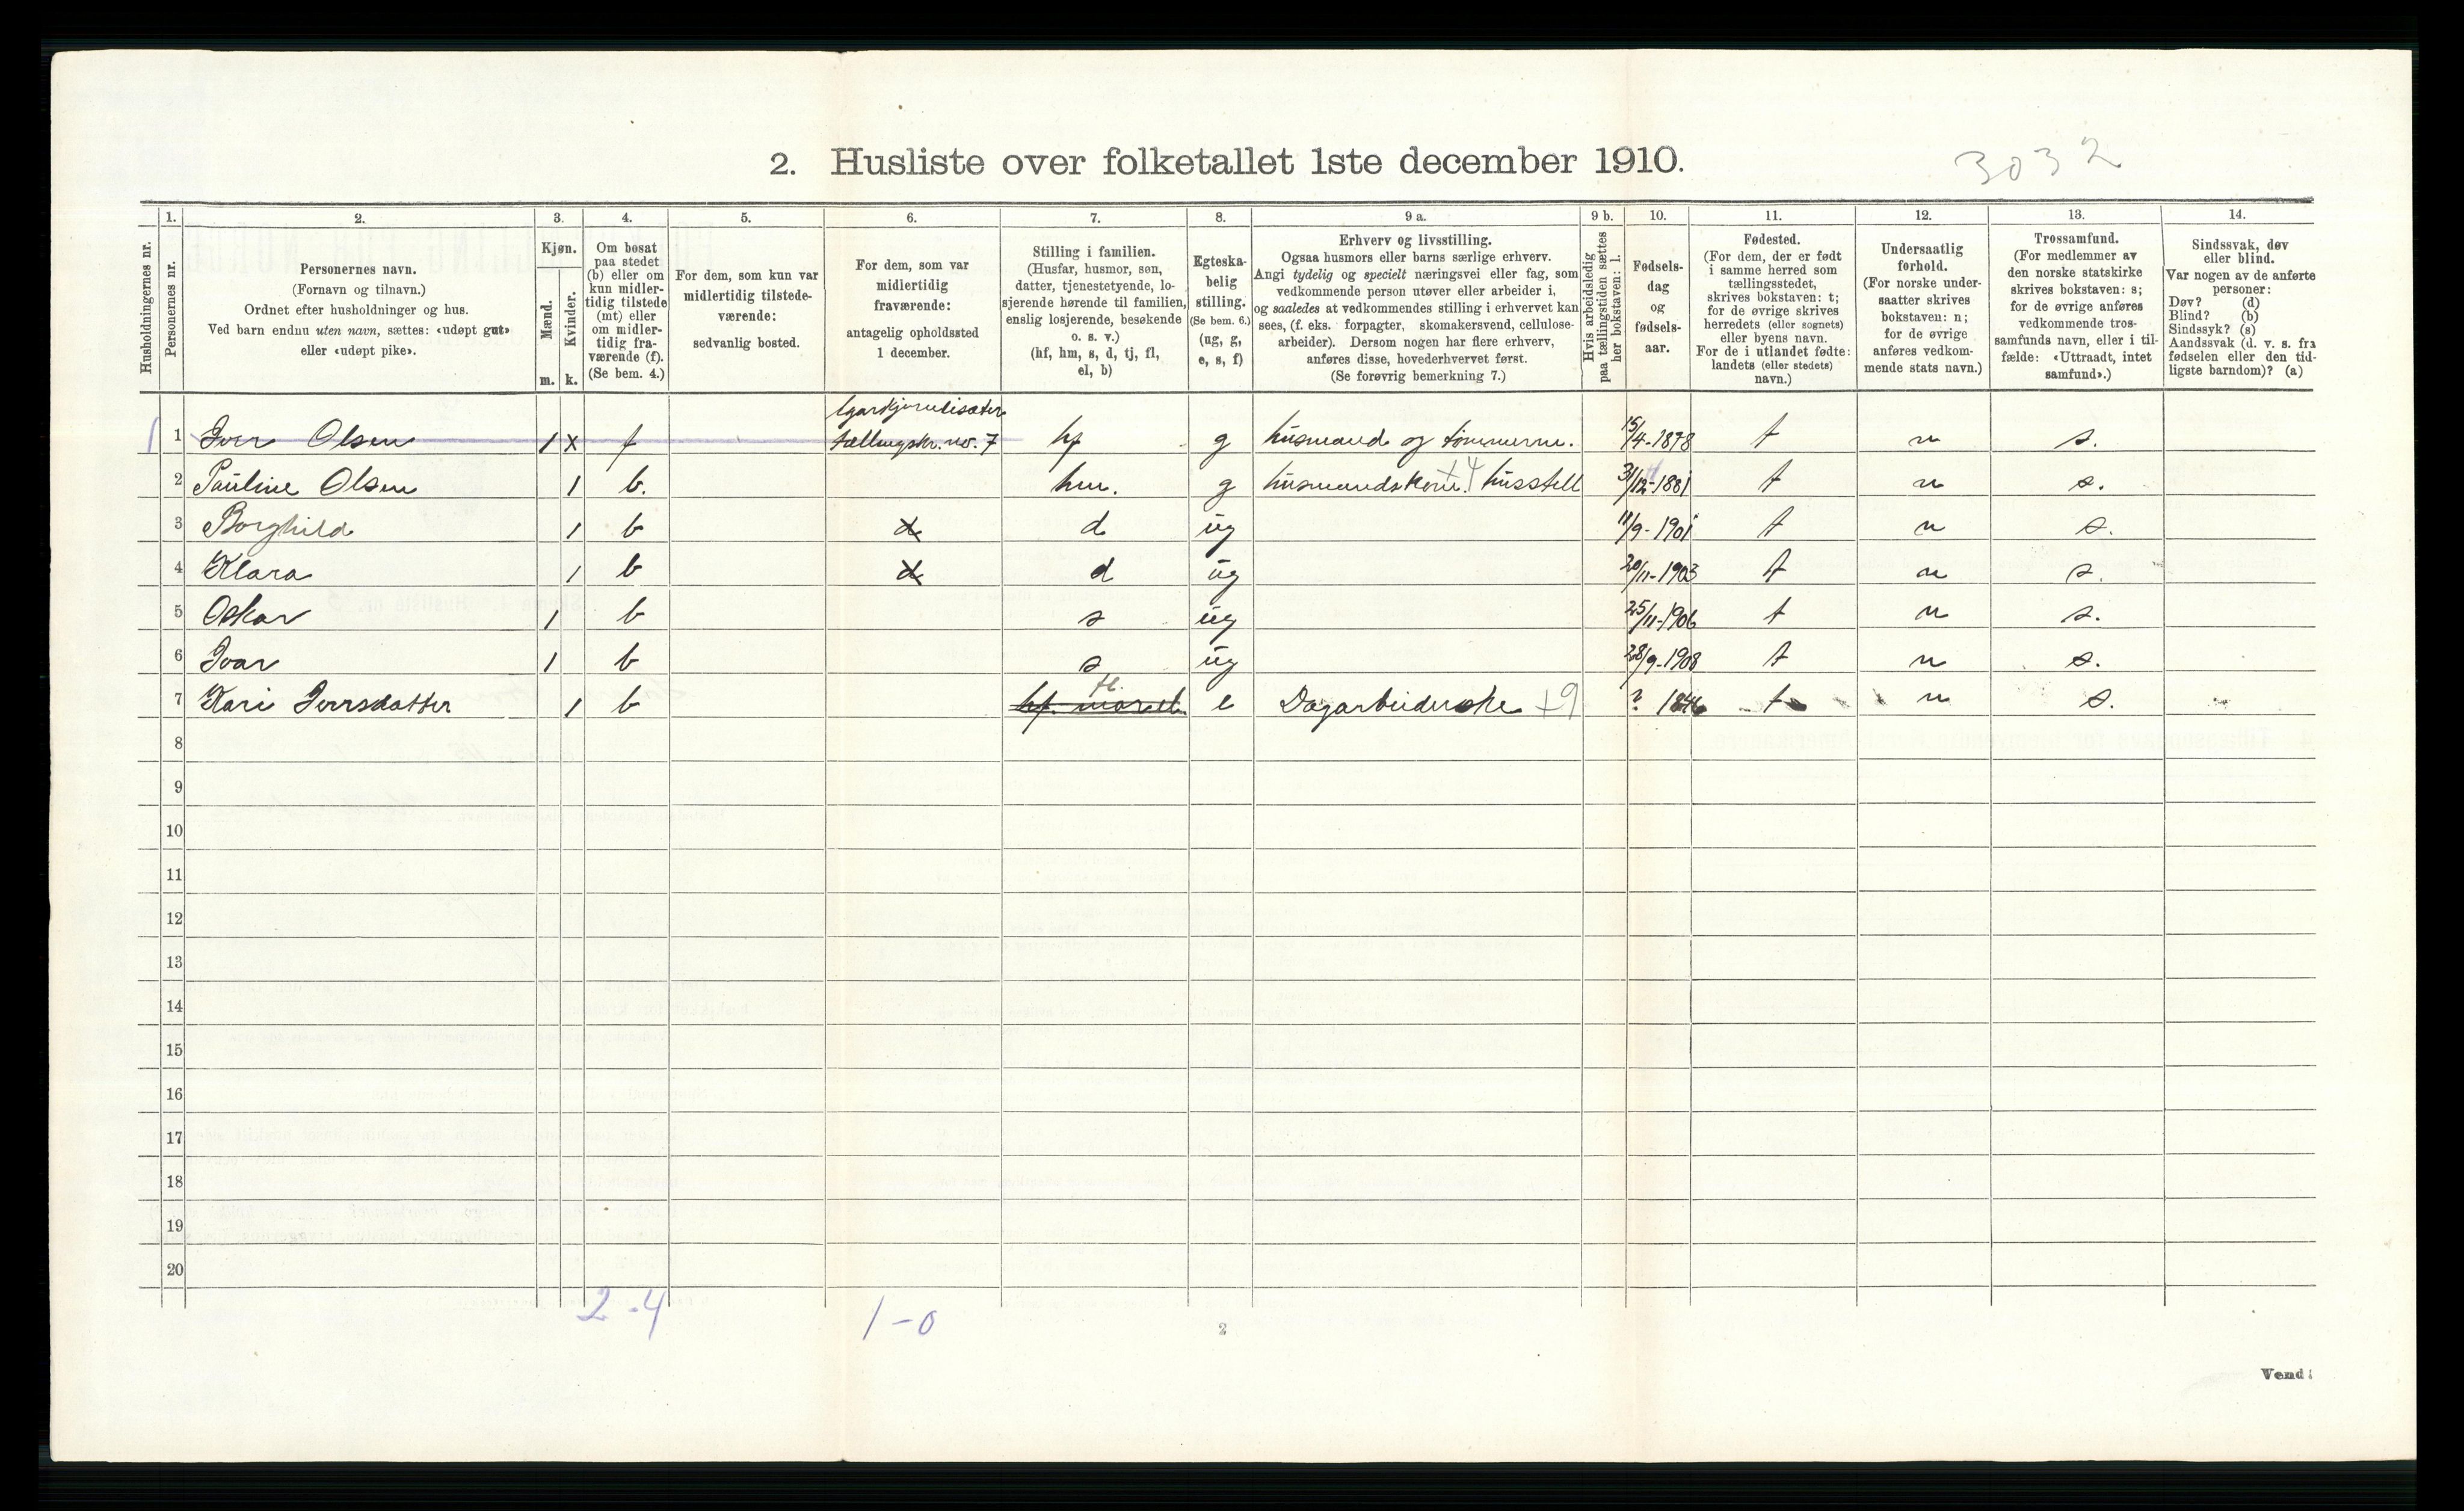 2. Husliste over folketallet 1ste december 1910.
3032
Husholdningernes nr.
1.
Personernes nr.
2.
Personernes navn.
(Fornavn og tilnavn.)
Ordnet efter husholdninger og hus.
Ved barn endnu uten navn, sættes: «udøpt gut»
eller «udøpt pike».
3.
Kjøn.
Mænd.
Kvinder.
m. k.
4.
Om bosat
paa stedet
(b) eller om
kun midler-
tidig tilstede
(mt) eller
om midler-
tidig fra-
værende (f).
(Se bem. 4.)
5.
For dem, som kun var
midlertidig tilstede-
værende:
sedvanlig bosted.
6.
For dem, som var
midlertidig
fraværende:
antagelig opholdssted
1 december.
7.
Stilling i familien.
(Husfar, husmor, søn,
datter, tjenestetyende, lo-
sjerende hørende til familien,
enslig losjerende, besøkende
o. s. v.)
(hf, hm, s, d, tj, fl,
el, b)
8.
Egteska-
belig
stilling.
(Se bem. 6.)
(ug, g,
e, s, f)
9 a.
Erhverv og livsstilling.
Ogsaa husmors eller barns særlige erhverv.
Angi tydelig og specielt næringsvei eller fag, som
vedkommende person utøver eller arbeider i,
og saaledes at vedkommendes stilling i erhvervet kan
sees, (f. eks. forpagter, skomakersvend, cellulose-
arbeider). Dersom nogen har flere erhverv,
anføres disse, hovederhvervet først.
(Se forøvrig bemerkning 7.)
9 b.
Hvis arbeidsledig
paa tællingstiden sættes
her bokstaven: l.
10.
Fødsels-
dag
og
fødsels-
aar.
11.
Fødested.
(For dem, der er født
i samme herred som
tællingsstedet,
skrives bokstaven: t;
for de øvrige skrives
herredets (eller sognets)
eller byens navn.
For de i utlandet fødte:
landets (eller stedets)
navn.)
12.
Undersaatlig
forhold.
(For norske under-
saatter skrives
bokstaven: n;
for de øvrige
anføres vedkom-
mende stats navn.)
13.
Trossamfund.
(For medlemmer av
den norske statskirke
skrives bokstaven: s;
for de øvrige anføres
vedkommende tros-
samfunds navn, eller i til-
fælde: «Uttraadt, intet
samfund».)
14.
Sindssvak, døv
eller blind.
Var nogen av de anførte
personer:
Døv? (d)
Blind? (b)
Sindssyk? (s)
Aandssvak (d. v. s. fra
fødselen eller den tid-
ligste barndom)? (a)
1 1 Iver Olsen 1 x f tællingskr. no. 7 hf g husmand og tømmerm. 15/4-1878 t n s.
2 Pauline Olsen 1 b. hm. g husmandskone +4 husstell 31/12-1881 t n s.
3 Borghild 1 b d ug 11/9-1901 t n s.
4 Klara 1 b d ug 20/11-1903 t n s.
5 Oskar 1 b s ug 25/11-1906 t n s.
6 Ivar 1 b s ug 28/9-1908 t n s.
7 Kari Iversdatter 1 b fl. e Dagarbeiderske +9 ? 1846 t n s.
8
9
10
11
12
13
14
15
16
17
18
19
20
2-4 1-0
2
Vend!